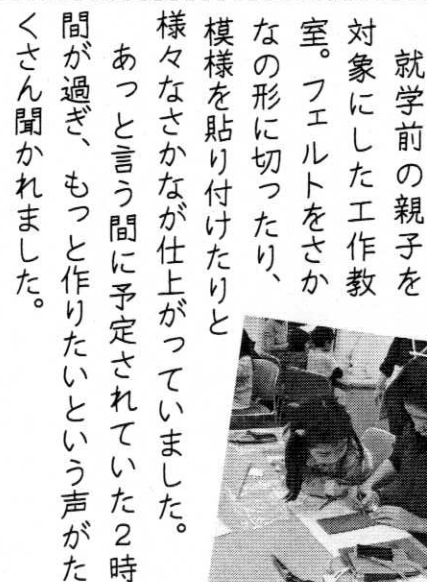 就学前の親子を
対象にした工作教
室。フェルトをさか
なの形に切ったり、
模様を貼り付けたりと
様々なさかなが仕上がっていました。
あっと言う間に予定されていた2時
間が過ぎ、もっと作りたいという声がた
くさん聞かれました。